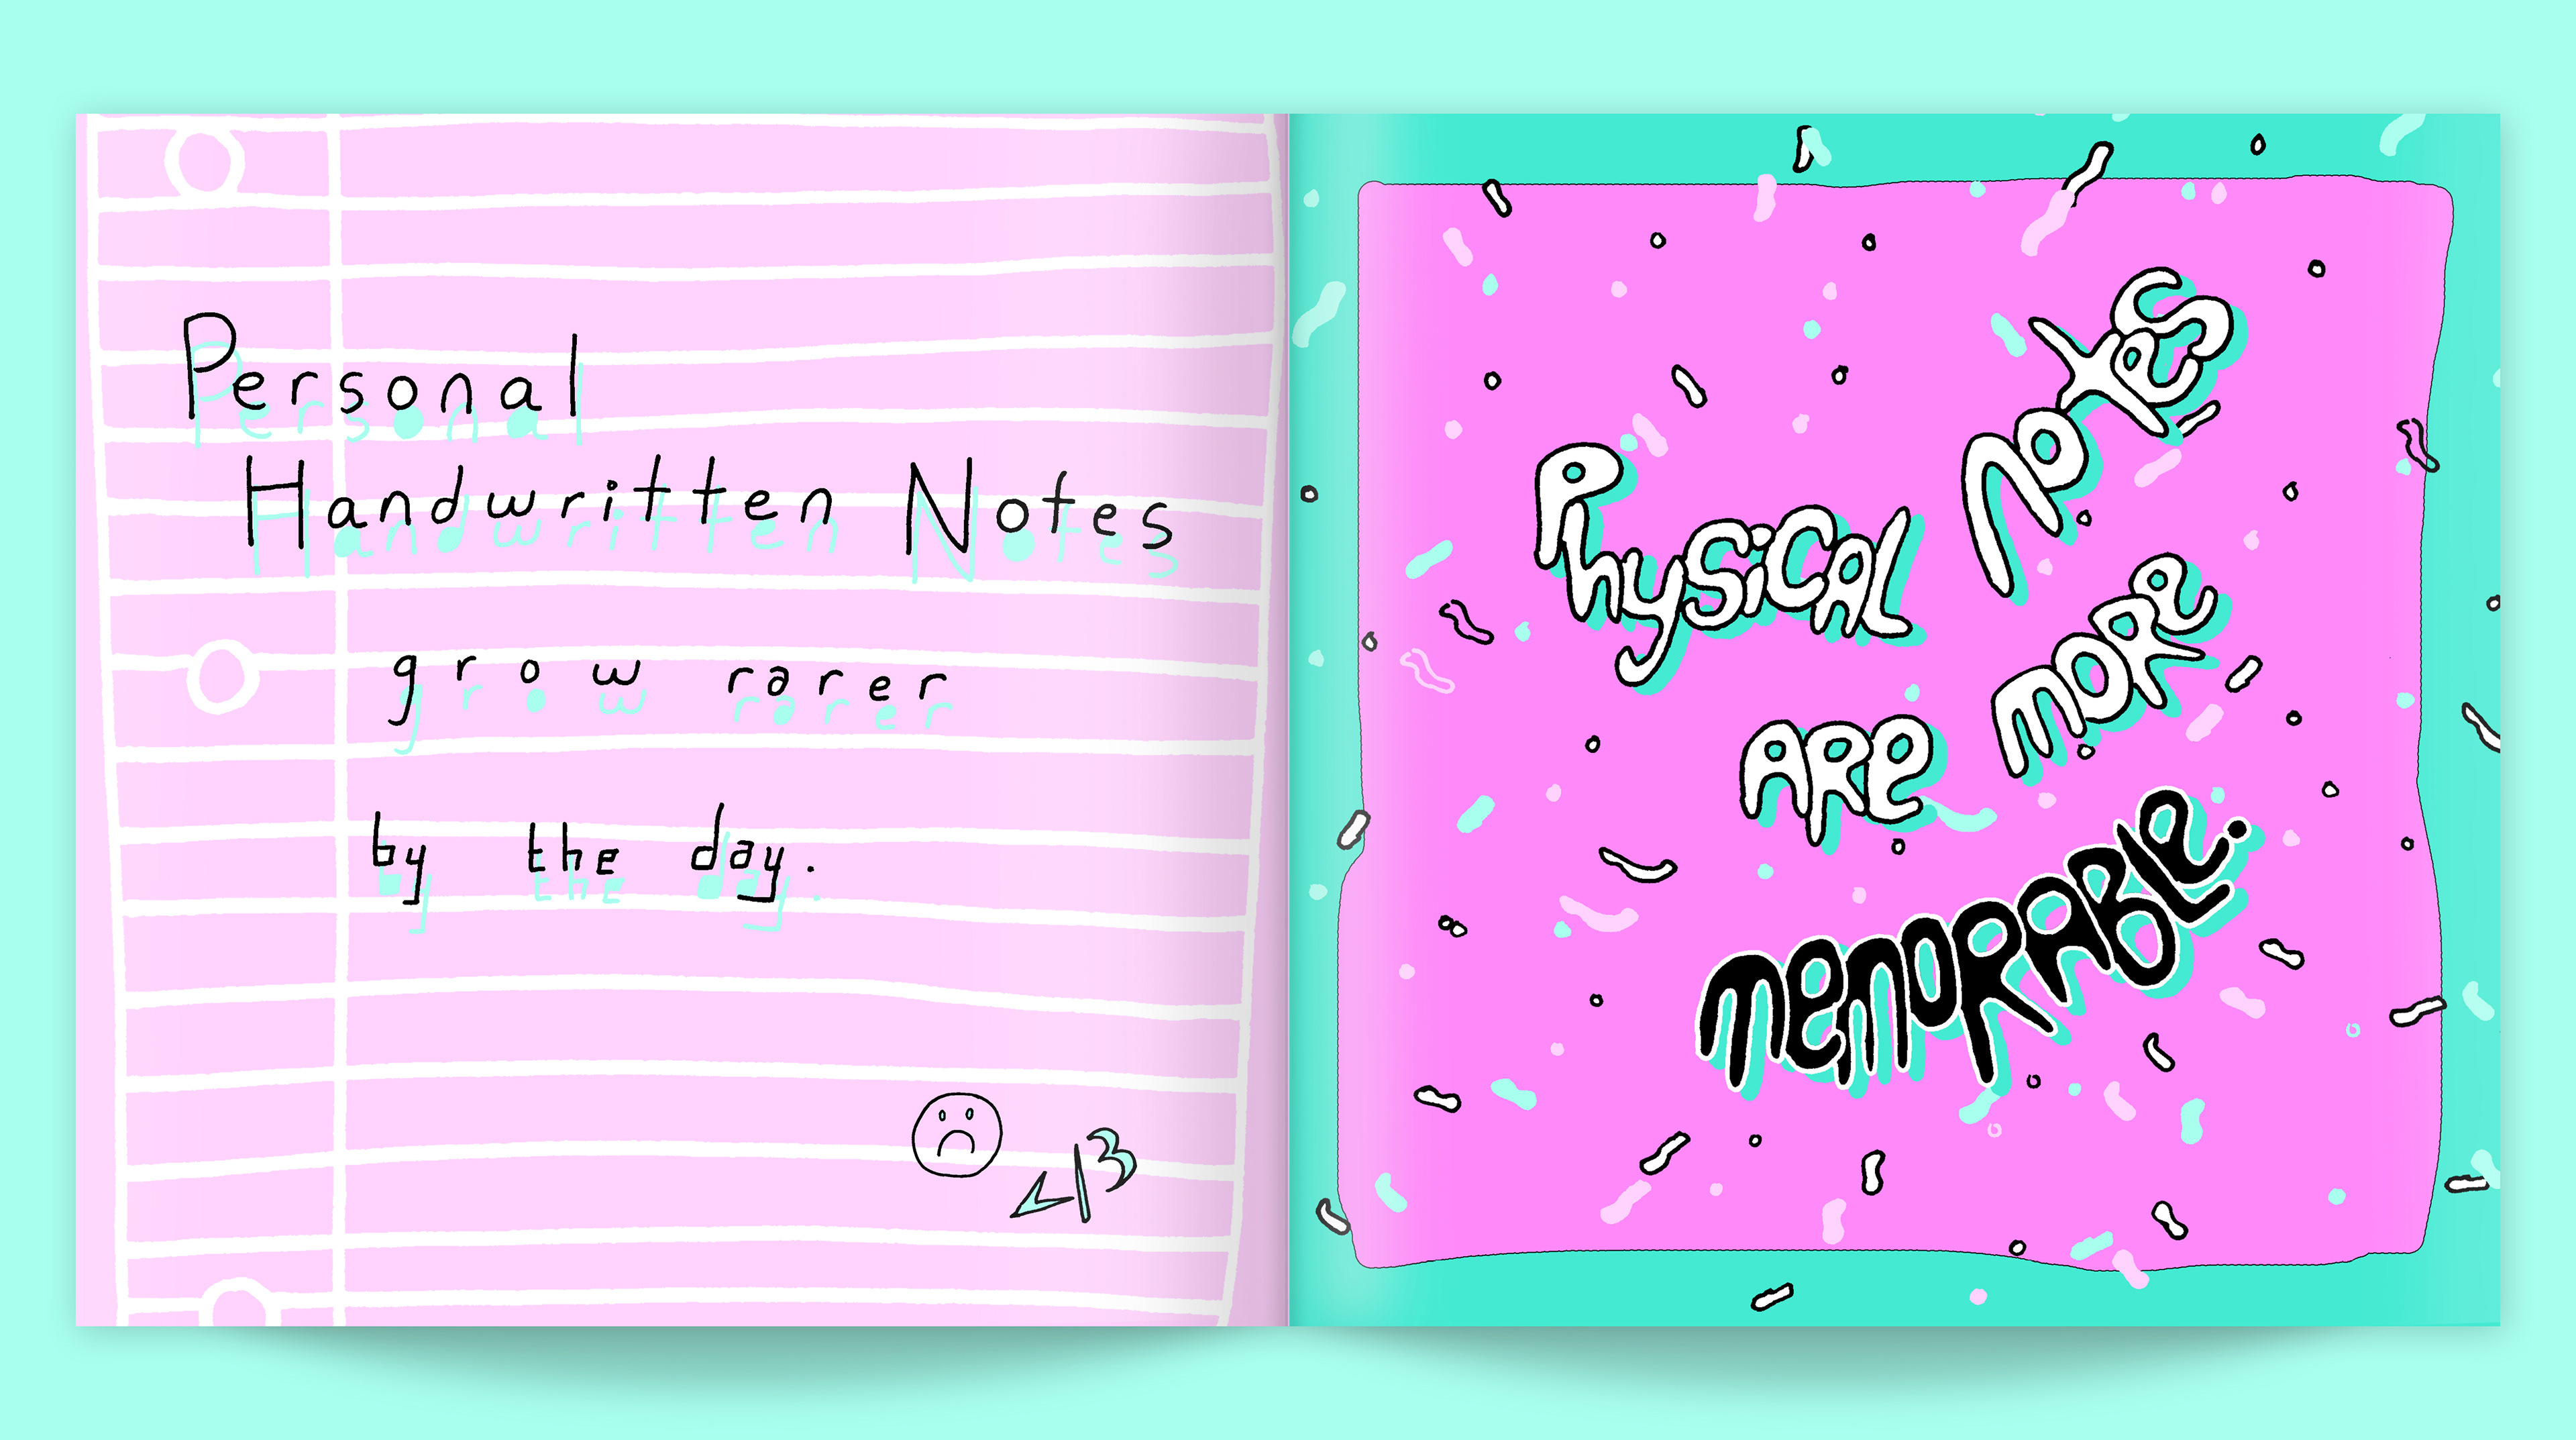 Personal
Handwritten Notes
grow rarer
by the day.
</3
PhysiCAL NOTES
ARe MORe
MeMORABLe.